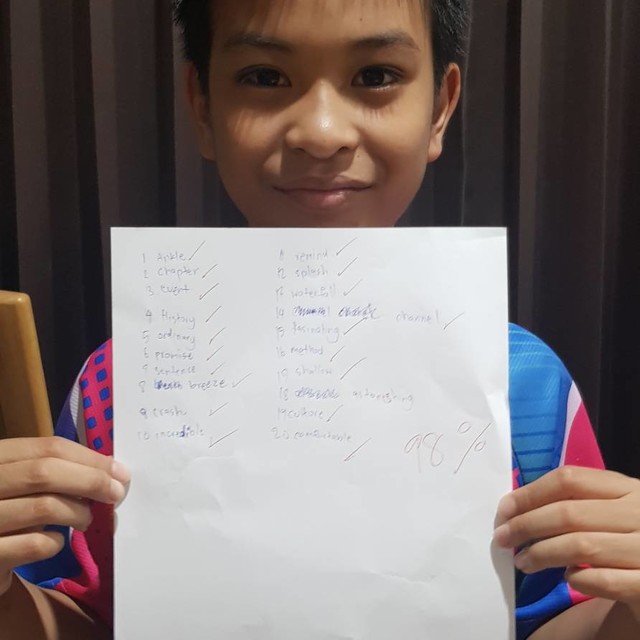 1 apple
2 chapter
3 event
4 History
5 ordinary
6 promise
7 sentence
8 breeze
9 crash
10 incredible
11 remind
12 splash
13 waterfall
14 channel
15 fascinating
16 method
shallow
18 astonishing
19 culture
20 comfortable
98%